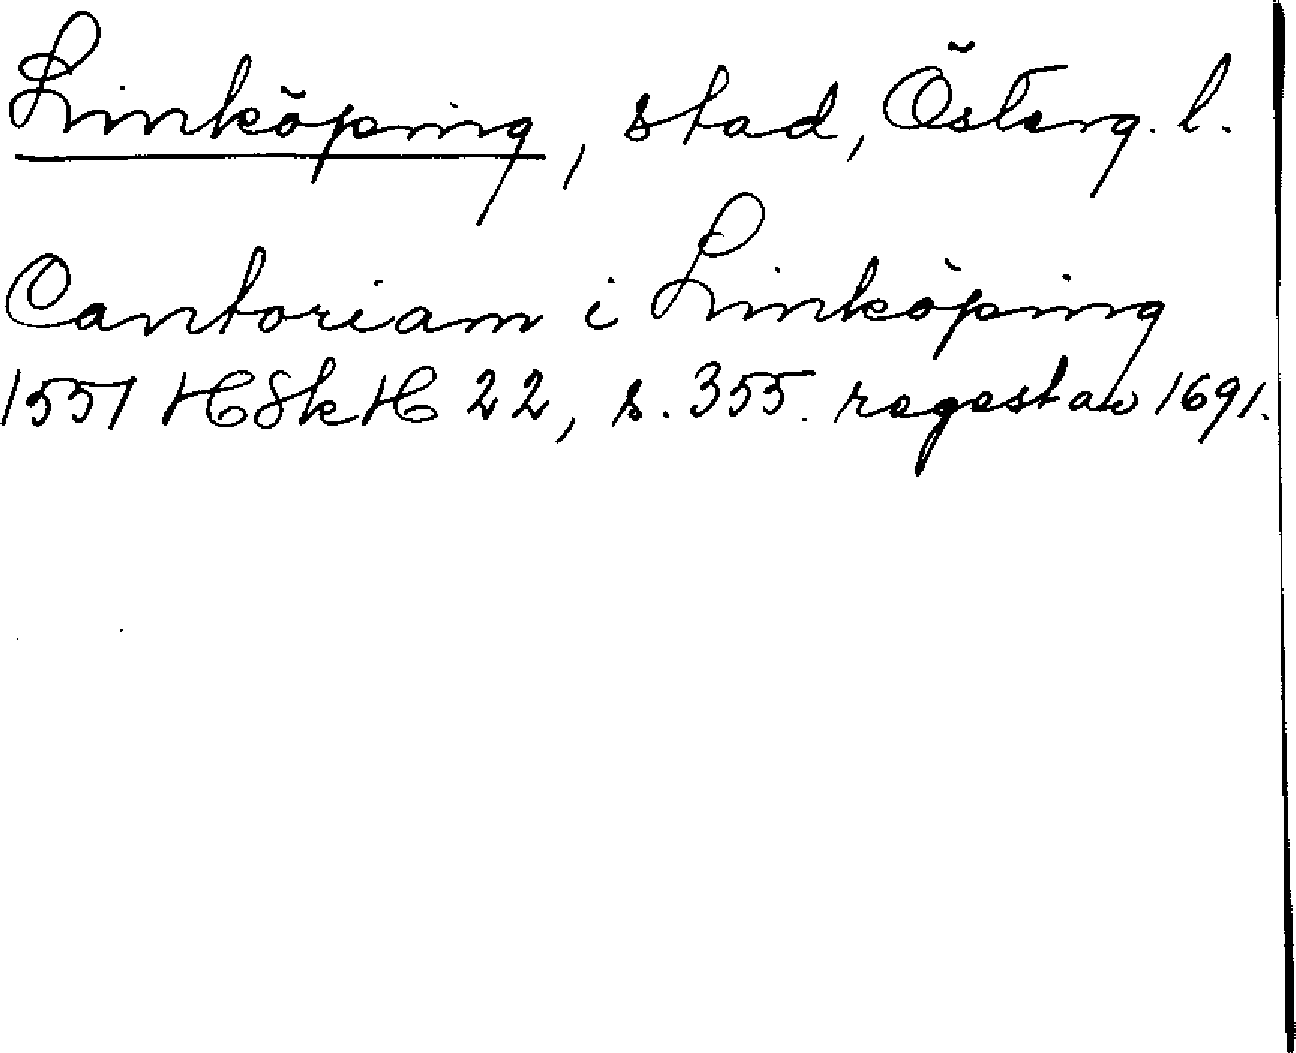 Linköping, stad, Österg. l.
Cantoriam i Linköping
1557 HSkH 22, s. 355. regest av 1691.